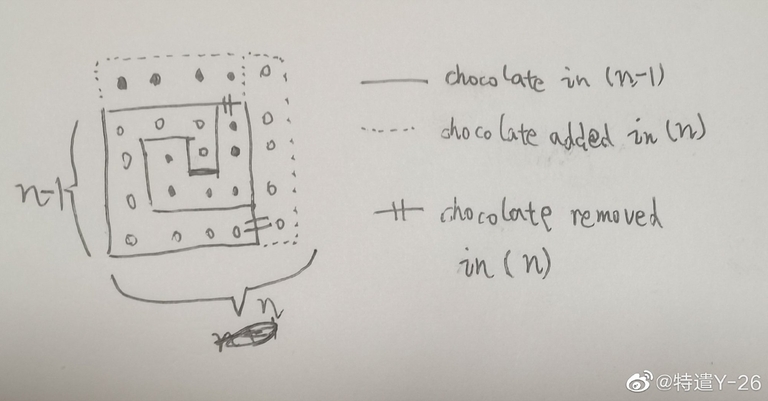 chocolate in (n-1)
chocolate added in (n)
n-1
chocolate removed
in (n)
n
@特遣Y-26